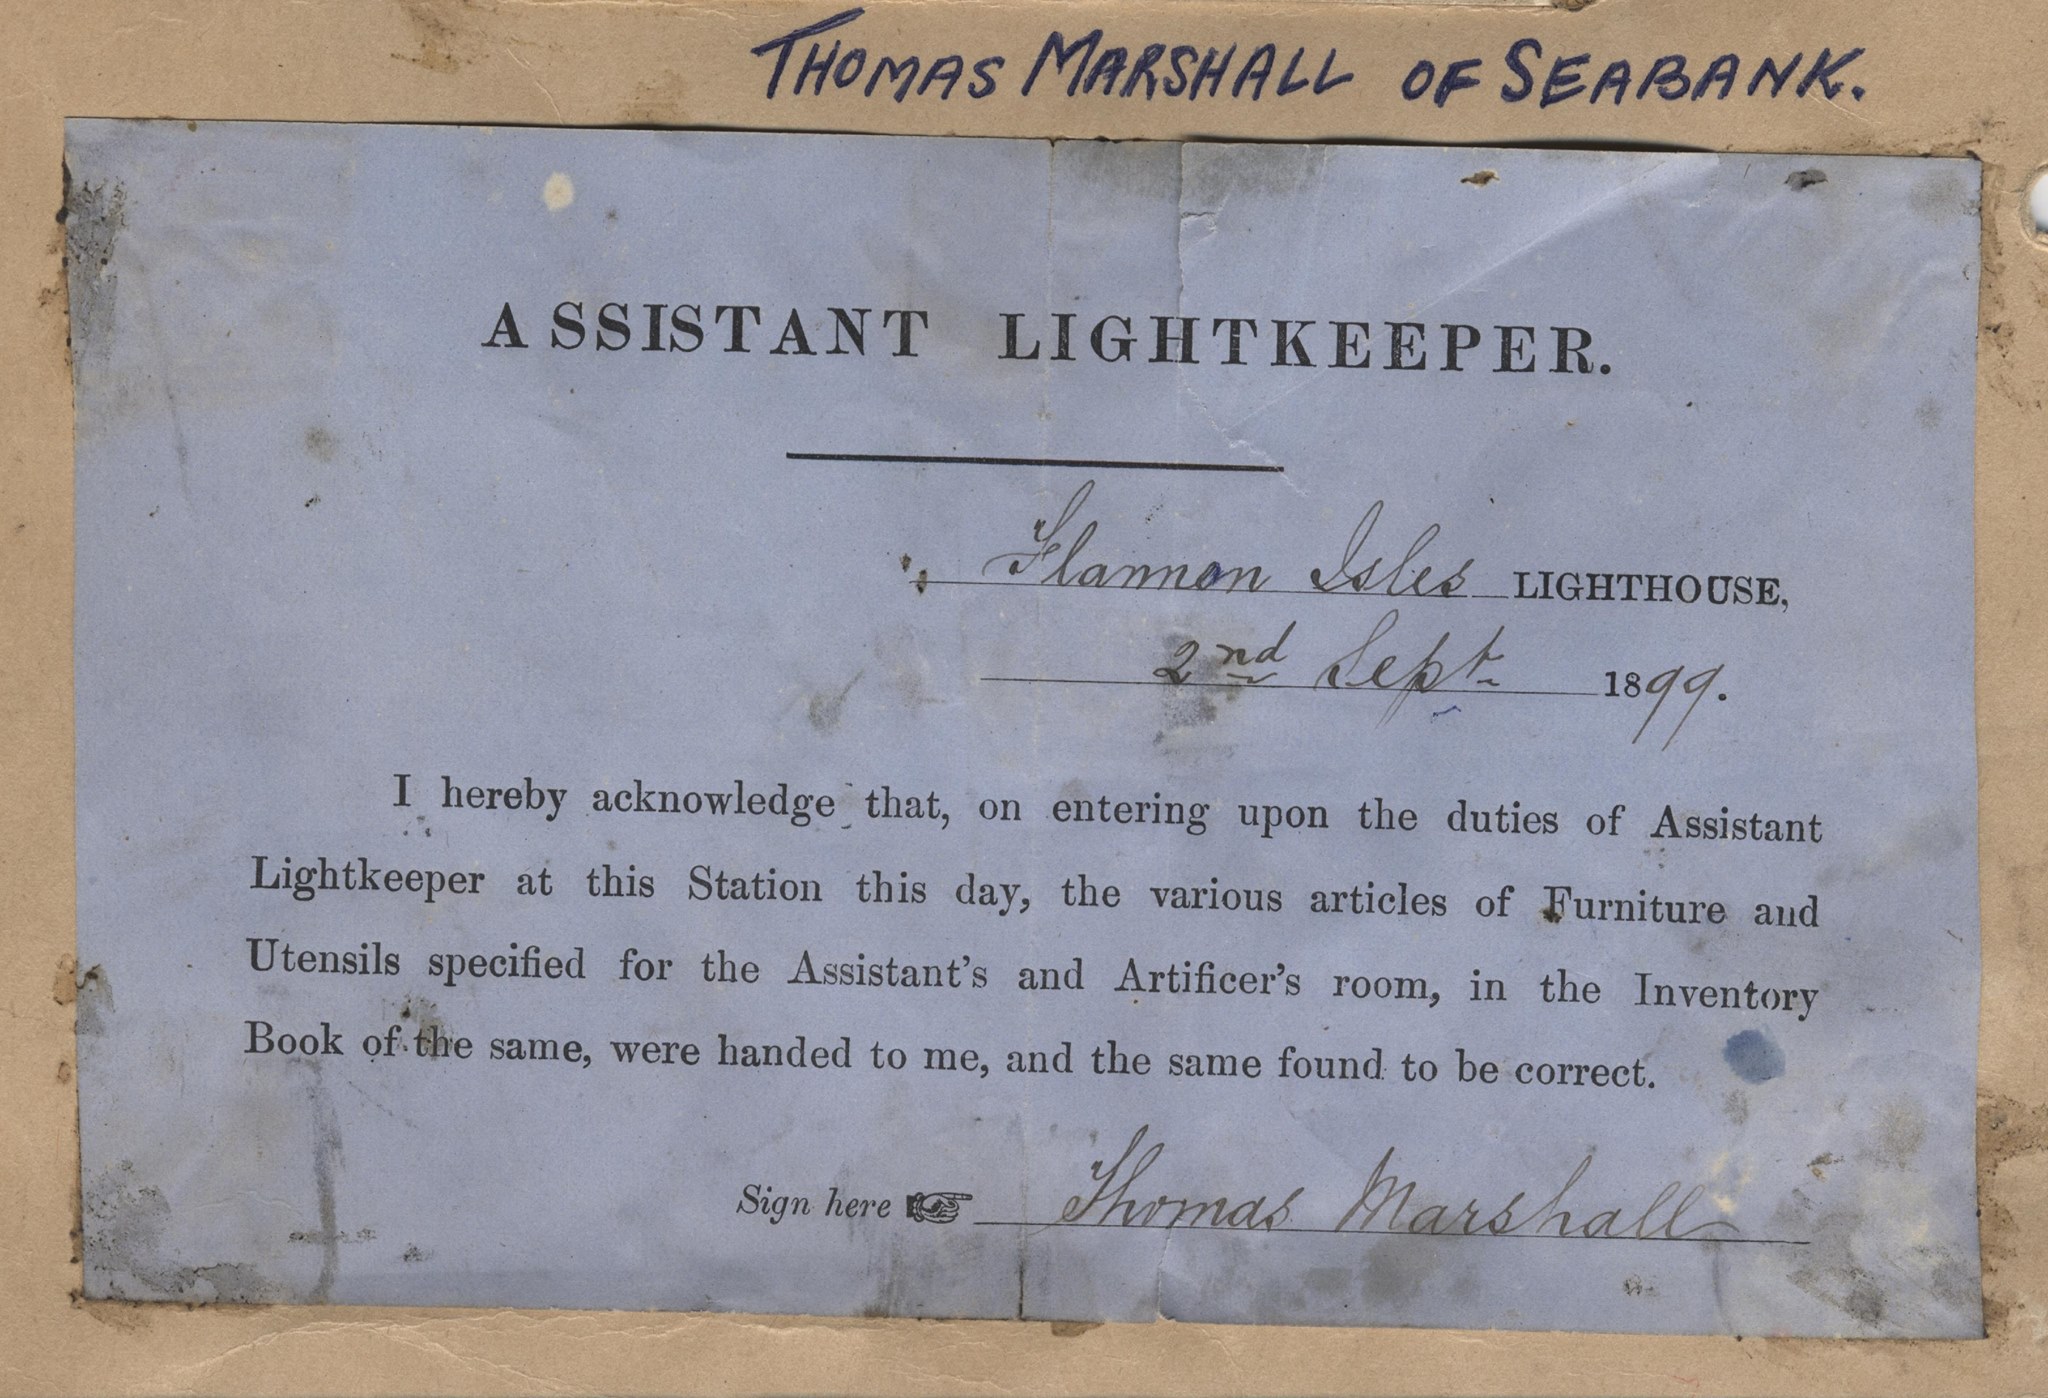 THOMAS MARSHALL OF SEABANK.
ASSISTANT LIGHTKEEPER.
Flannon Isles LIGHTHOUSE,
2nd Sept 1899.
I hereby acknowledge that, on entering upon the duties of Assistant
Lightkeeper at this Station this day, the various articles of Furniture and
Utensils specified for the Assistant's and Artificer's room, in the Inventory
Book of the same, were handed to me, and the same found to be correct.
Sign here ☞ Thomas Marshall